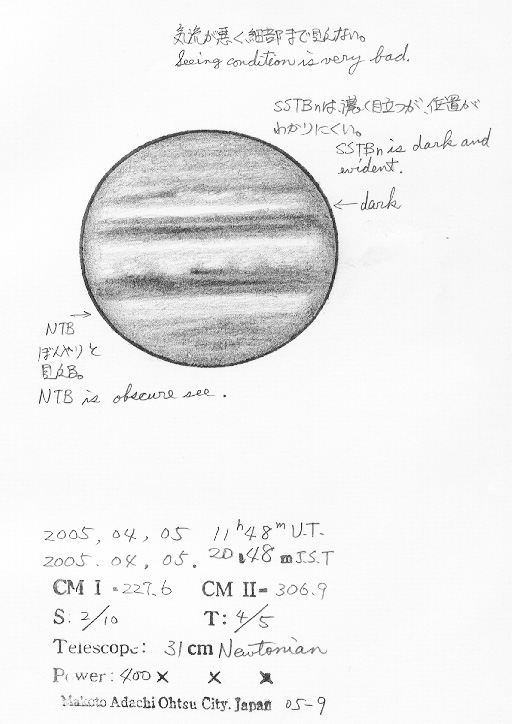 気流が悪く細部まで見えない。
Seeing condition is very bad.
SSTBnは、濃く目立つが、位置が
わかりにくい。
SSTBn is dark and
evident.
←dark
→
NTB
ぼんやりと
見える。
NTB is obscure see.
2005, 04, 05 11h48m U.T.
2005. 04, 05. 20h48m J.S.T
CM I = 227.6 CM II= 306.9
S: 2/10 T: 4/5
Telescope: 31cm Newtonian
Power: 400× × ×
Makoto Adachi Ohtsu City. Japan 05-9